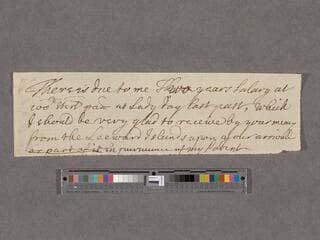 There is due to me Two years Salary at
100ˡ Sterl p ann at Lady day last past, which
I should be very glad to receive by your means
from the Leeward Islands upon your arrivall
or part of it in pursuance of my Patent